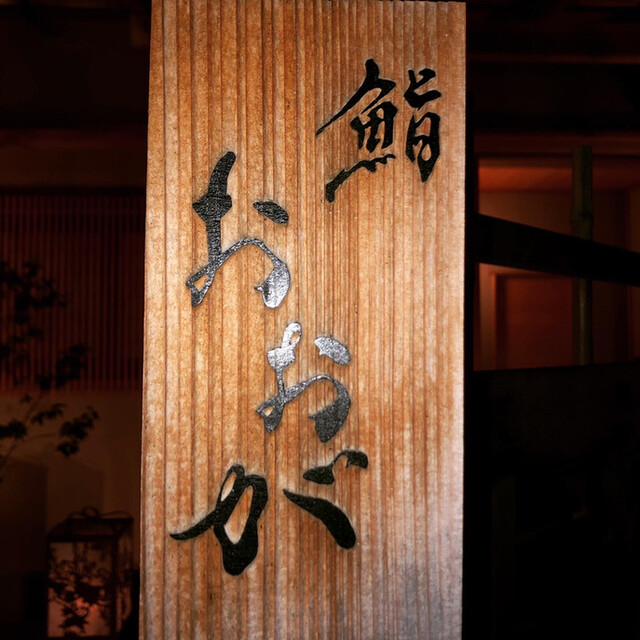 鮨
おおが